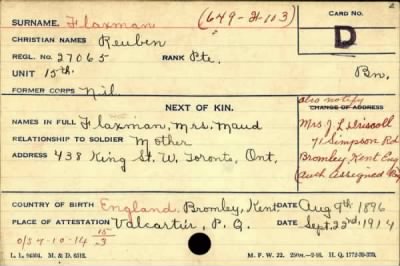 SURNAME. Flaxman (649-F-103) CARD NO.
CHRISTIAN NAMES Reuben D
REGL. NO. 27065 RANK Pte.
UNIT 15th. Bn.
FORMER CORPS Nil
NEXT OF KIN. also notify CHANGE OF ADDRESS
NAMES IN FULL Flaxman, Mrs. Maud Mrs J. L. Driscoll
RELATIONSHIP TO SOLDIER Mother 71 Simpson Rd
ADDRESS 438 King St. W. Toronto, Ont. Bromley, Kent Eng
(Auth Assigned Pay
COUNTRY OF BIRTH England, Bromley, Kent. DATE Aug 9th 1896
PLACE OF ATTESTATION Valcartier, P. Q. DATE Sept. 22nd, 1914
O/S 4-10-14 15/3
L. L. 94504. M. & D. 6512. M. F. W. 22. 250M.-2-16. H. Q. 1772-39-339.